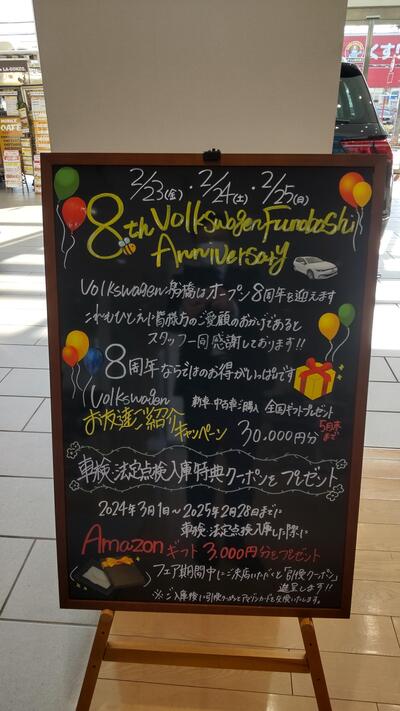 2/23(金)・2/24(土)・2/25(日)
8th Volkswagen Funabashi
Anniversary
Volkswagen船橋はオープン8周年を迎えます
これもひとえに皆様方のご愛顧のおかげであると
スタッフ一同感謝しております!!
8周年ならではのお得がいっぱいです
Volkswagen
お友達ご紹介
キャンペーン
新車・中古車ご購入 全国ギフトプレゼント
30.000円分
5月末まで
車検・法定点検入庫特典クーポンをプレゼント
2024年3月1日〜2025年2月28日までに
車検・法定点検入庫した際に
Amazonギフト3.000円分をプレゼント
フェア期間中にご来店いただくと「引換クーポン」
進呈します!!
※ご入庫後に引換クーポンとアマゾンカードを交換いたします。
くすり
CAFE